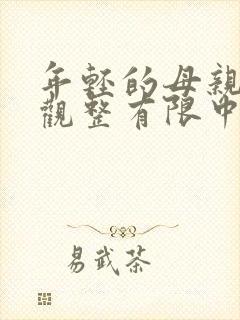 年輕的母親
觀整有限中
易武茶